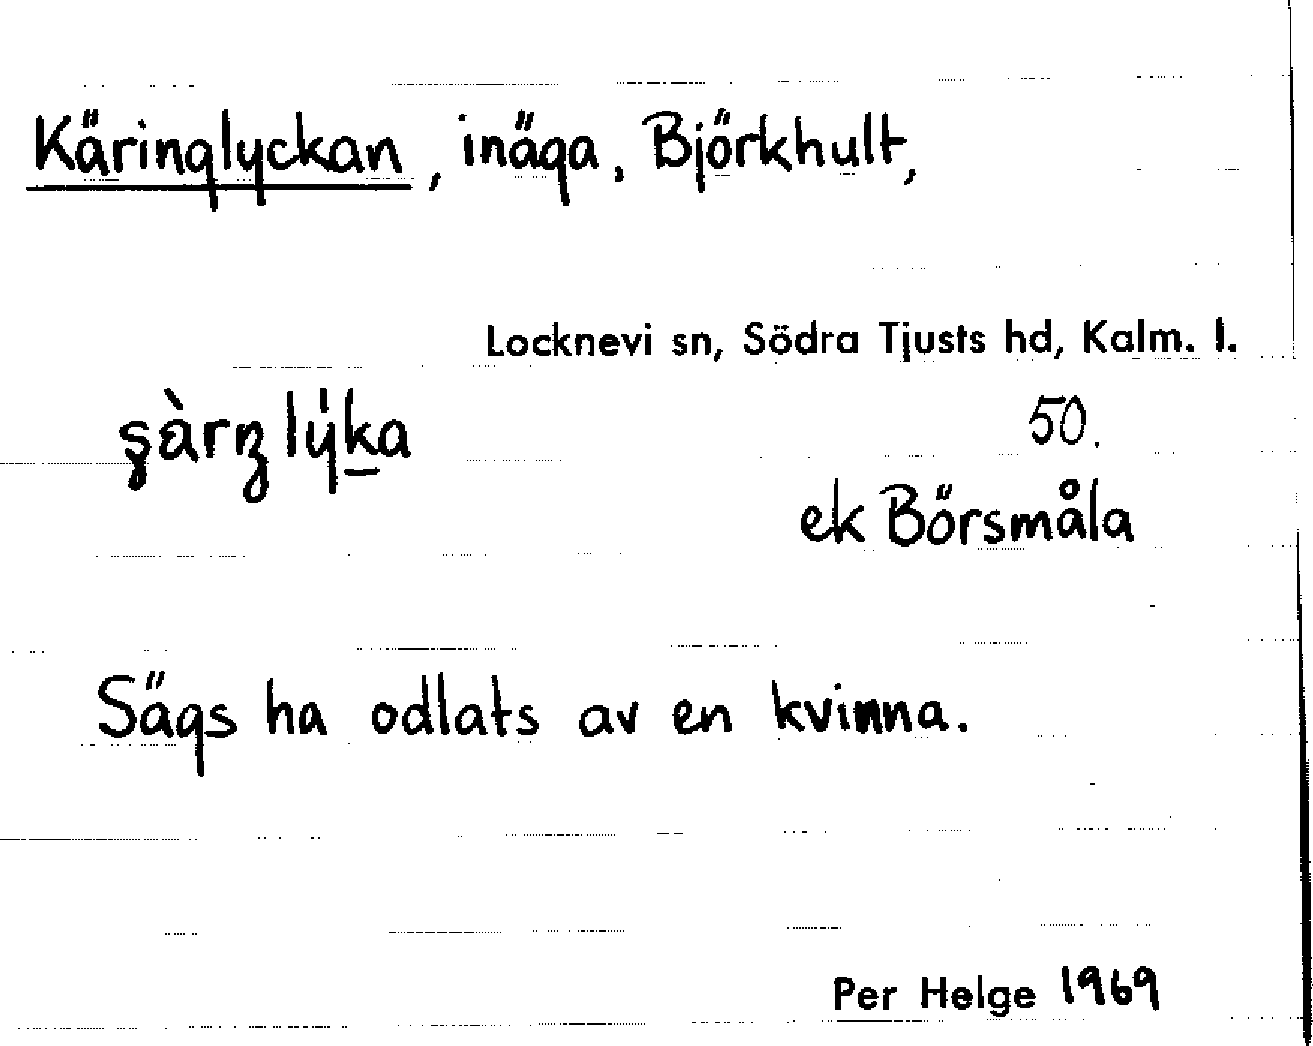 Käringlyckan, inäga, Björkhult,
Locknevi sn, Södra Tjusts hd, Kalm. l.
50.
ek Börsmåla
Sägs ha odlats av en kvinna.
Per Helge 1969